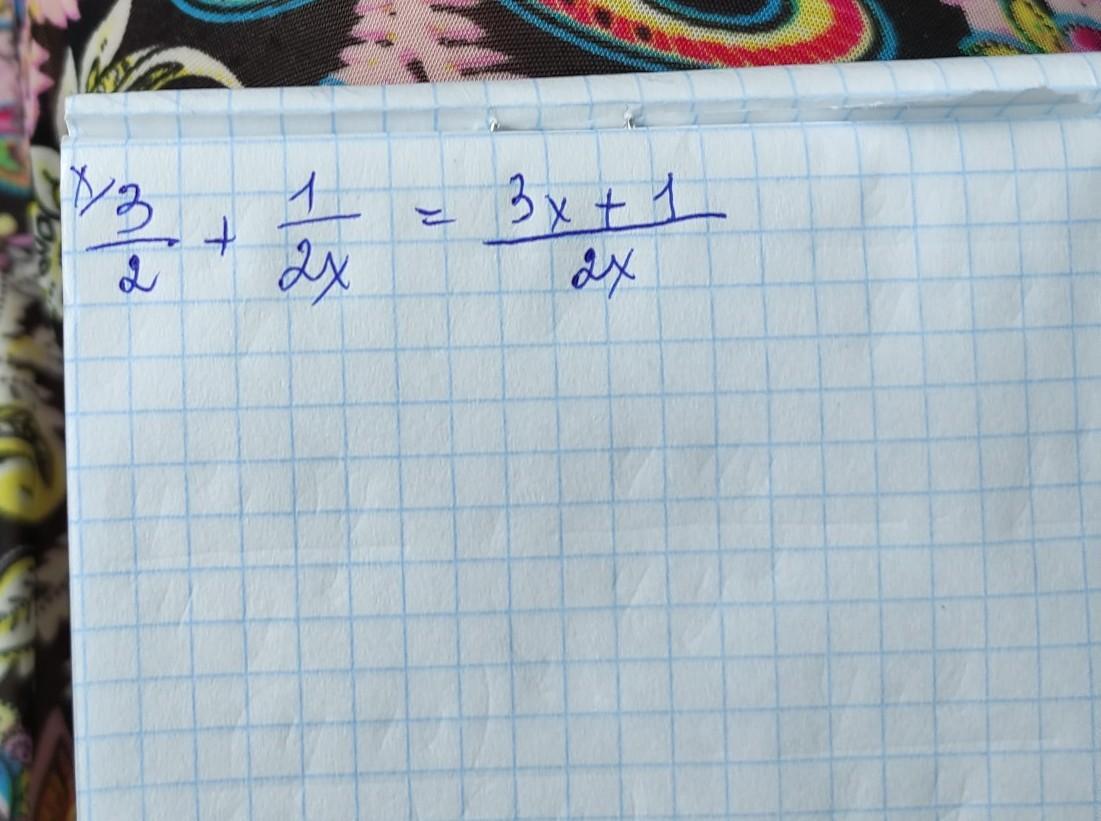 x/ 3/2 + 1/2x = 3x + 1/2x